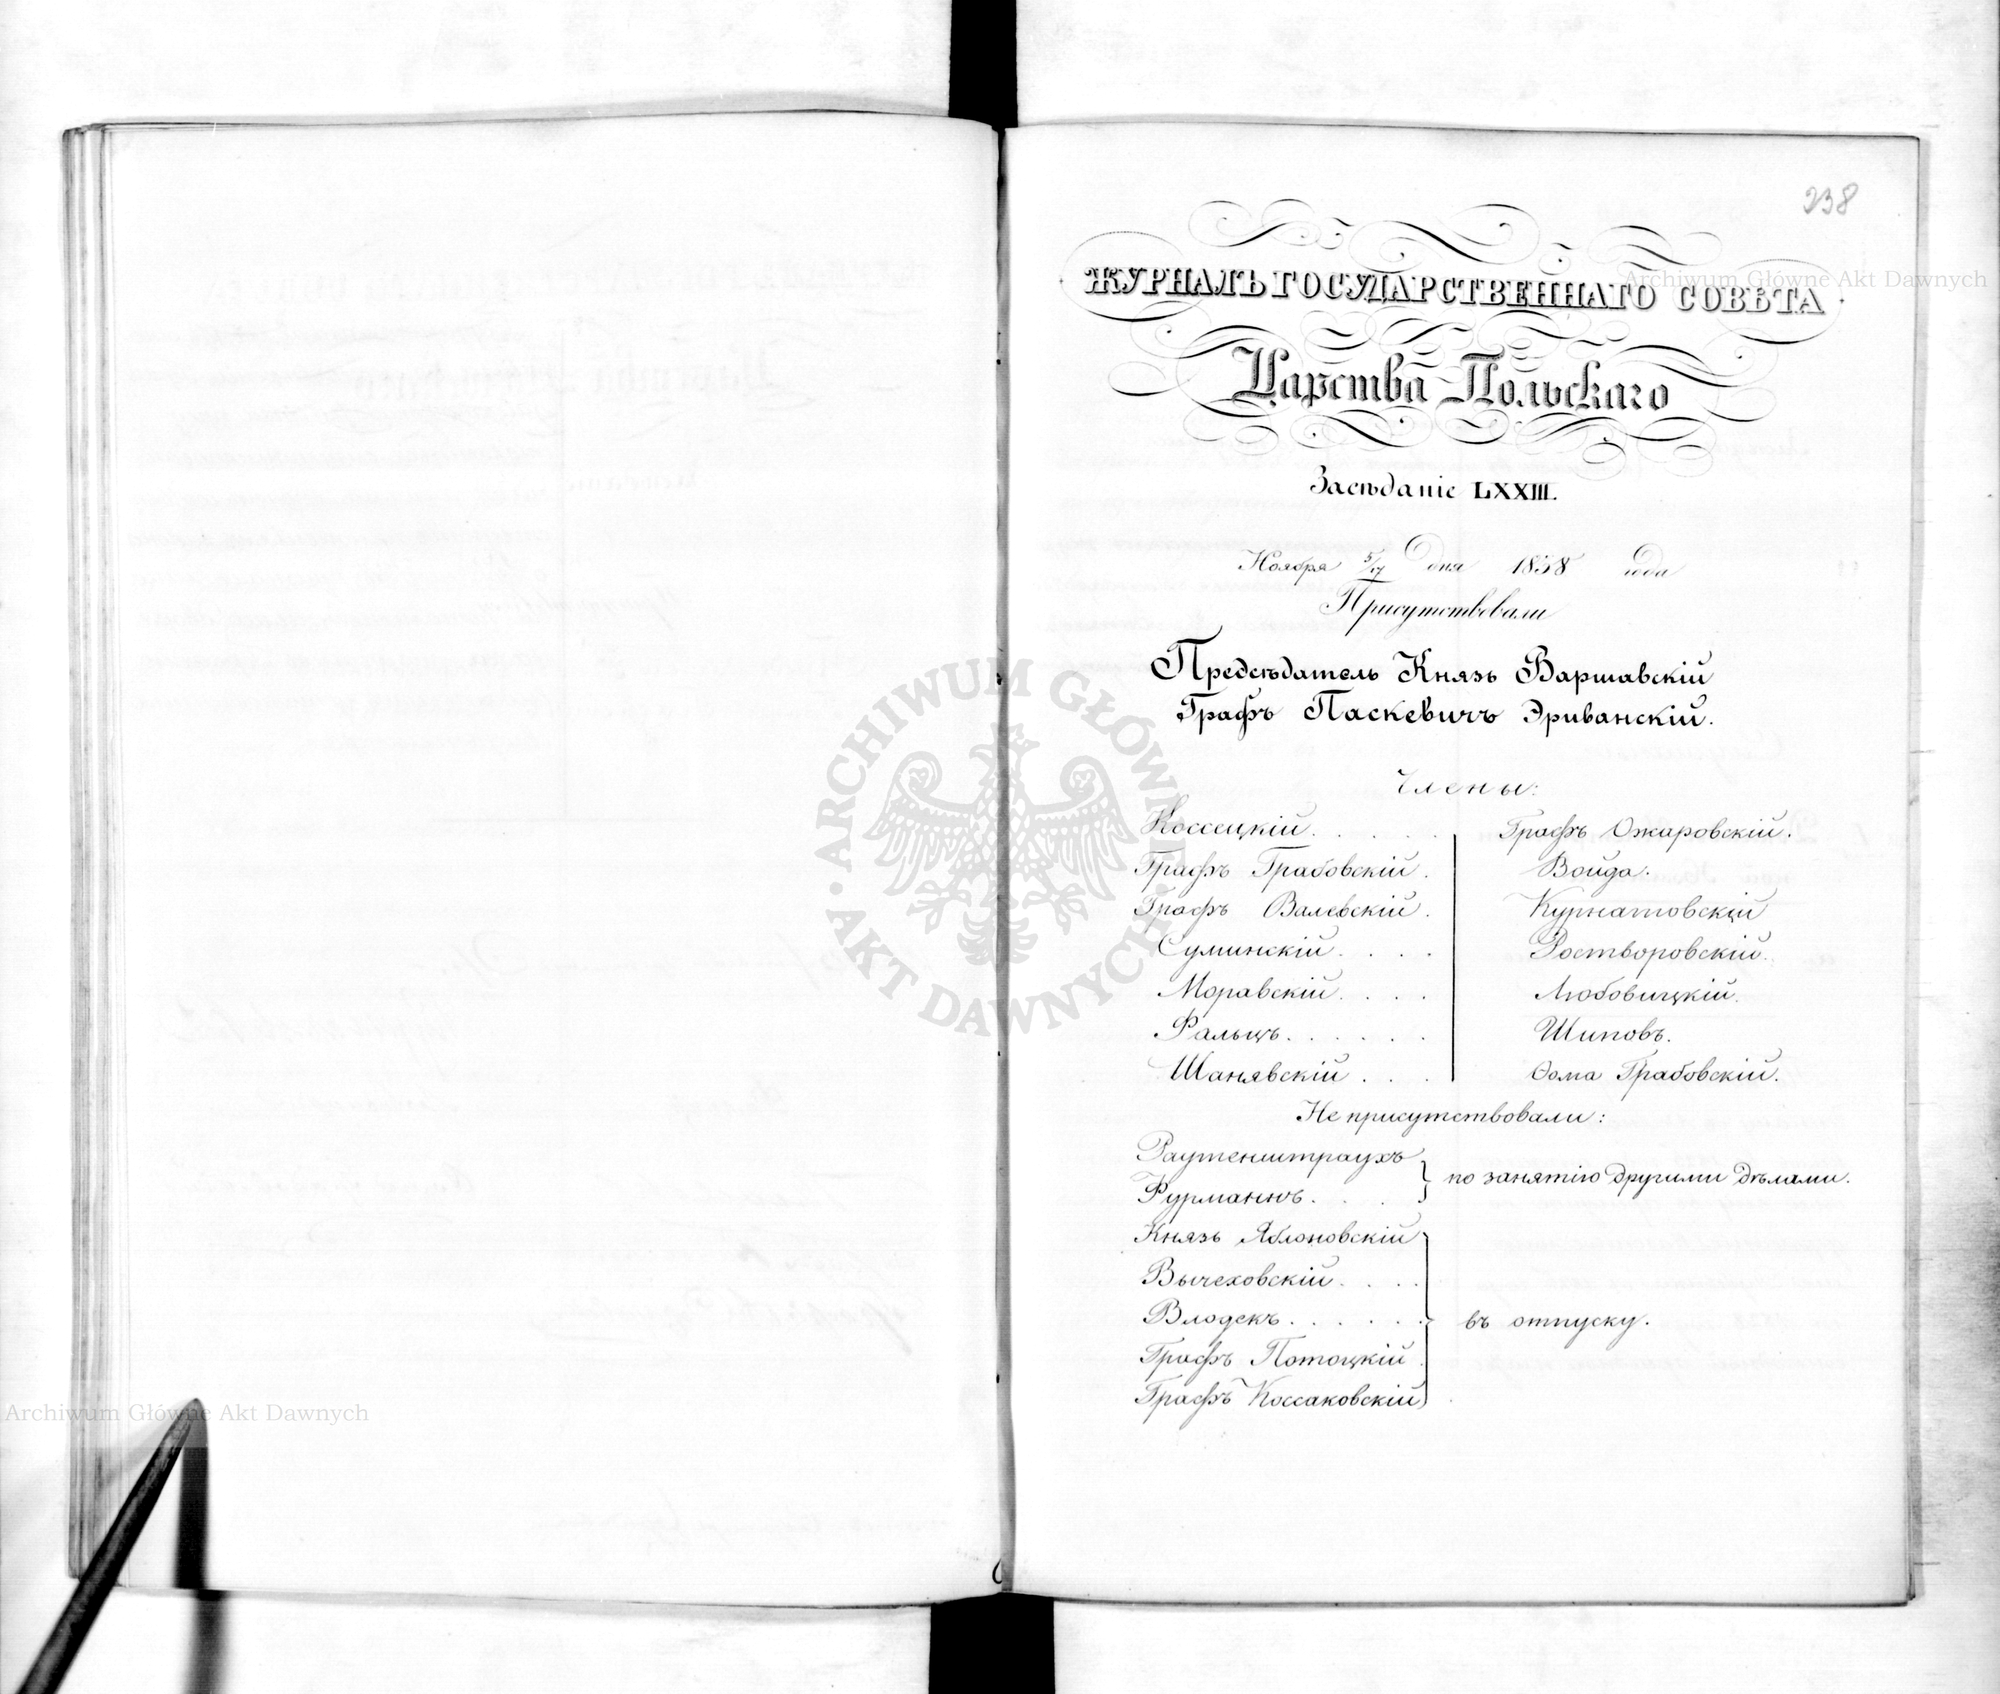 238
ЖУРНАЛЪ ГОСУДАРСТВЕННАГО СОВѢТА
Царства Польскаго
Засѣданіе LXXIII.
Ноября 5/17 дня 1838 года
Присутствовали
Предсѣдатель Князь Варшавскій
Графъ Паскевичъ Эриванскій.
Члены:
Коссецкій. . . . .
Графъ Грабовскій.
Графъ Валевскій.
Суминскій. . . .
Моравскій. . . .
Фальцъ. . . . . .
Шанявскій . . .
Графъ Ожаровскій.
Войда.
Курнатовскій
Ростворовскій.
Любовицкій.
Шиповъ.
Ѳома Грабовскій.
Не присутствовали:
Раутенштраухъ
Фурманнъ. . . .
по занятію другими дѣлами.
Князь Яблоновскій
Вычеховскій. . . .
Влодекъ. . . . . .
Графъ Потоцкій.
Графъ Коссаковскій
въ отпуску.
Archiwum Główne Akt Dawnych
Archiwum Główne Akt Dawnych
ARCHIWUM GŁÓWNE
AKT DAWNYCH